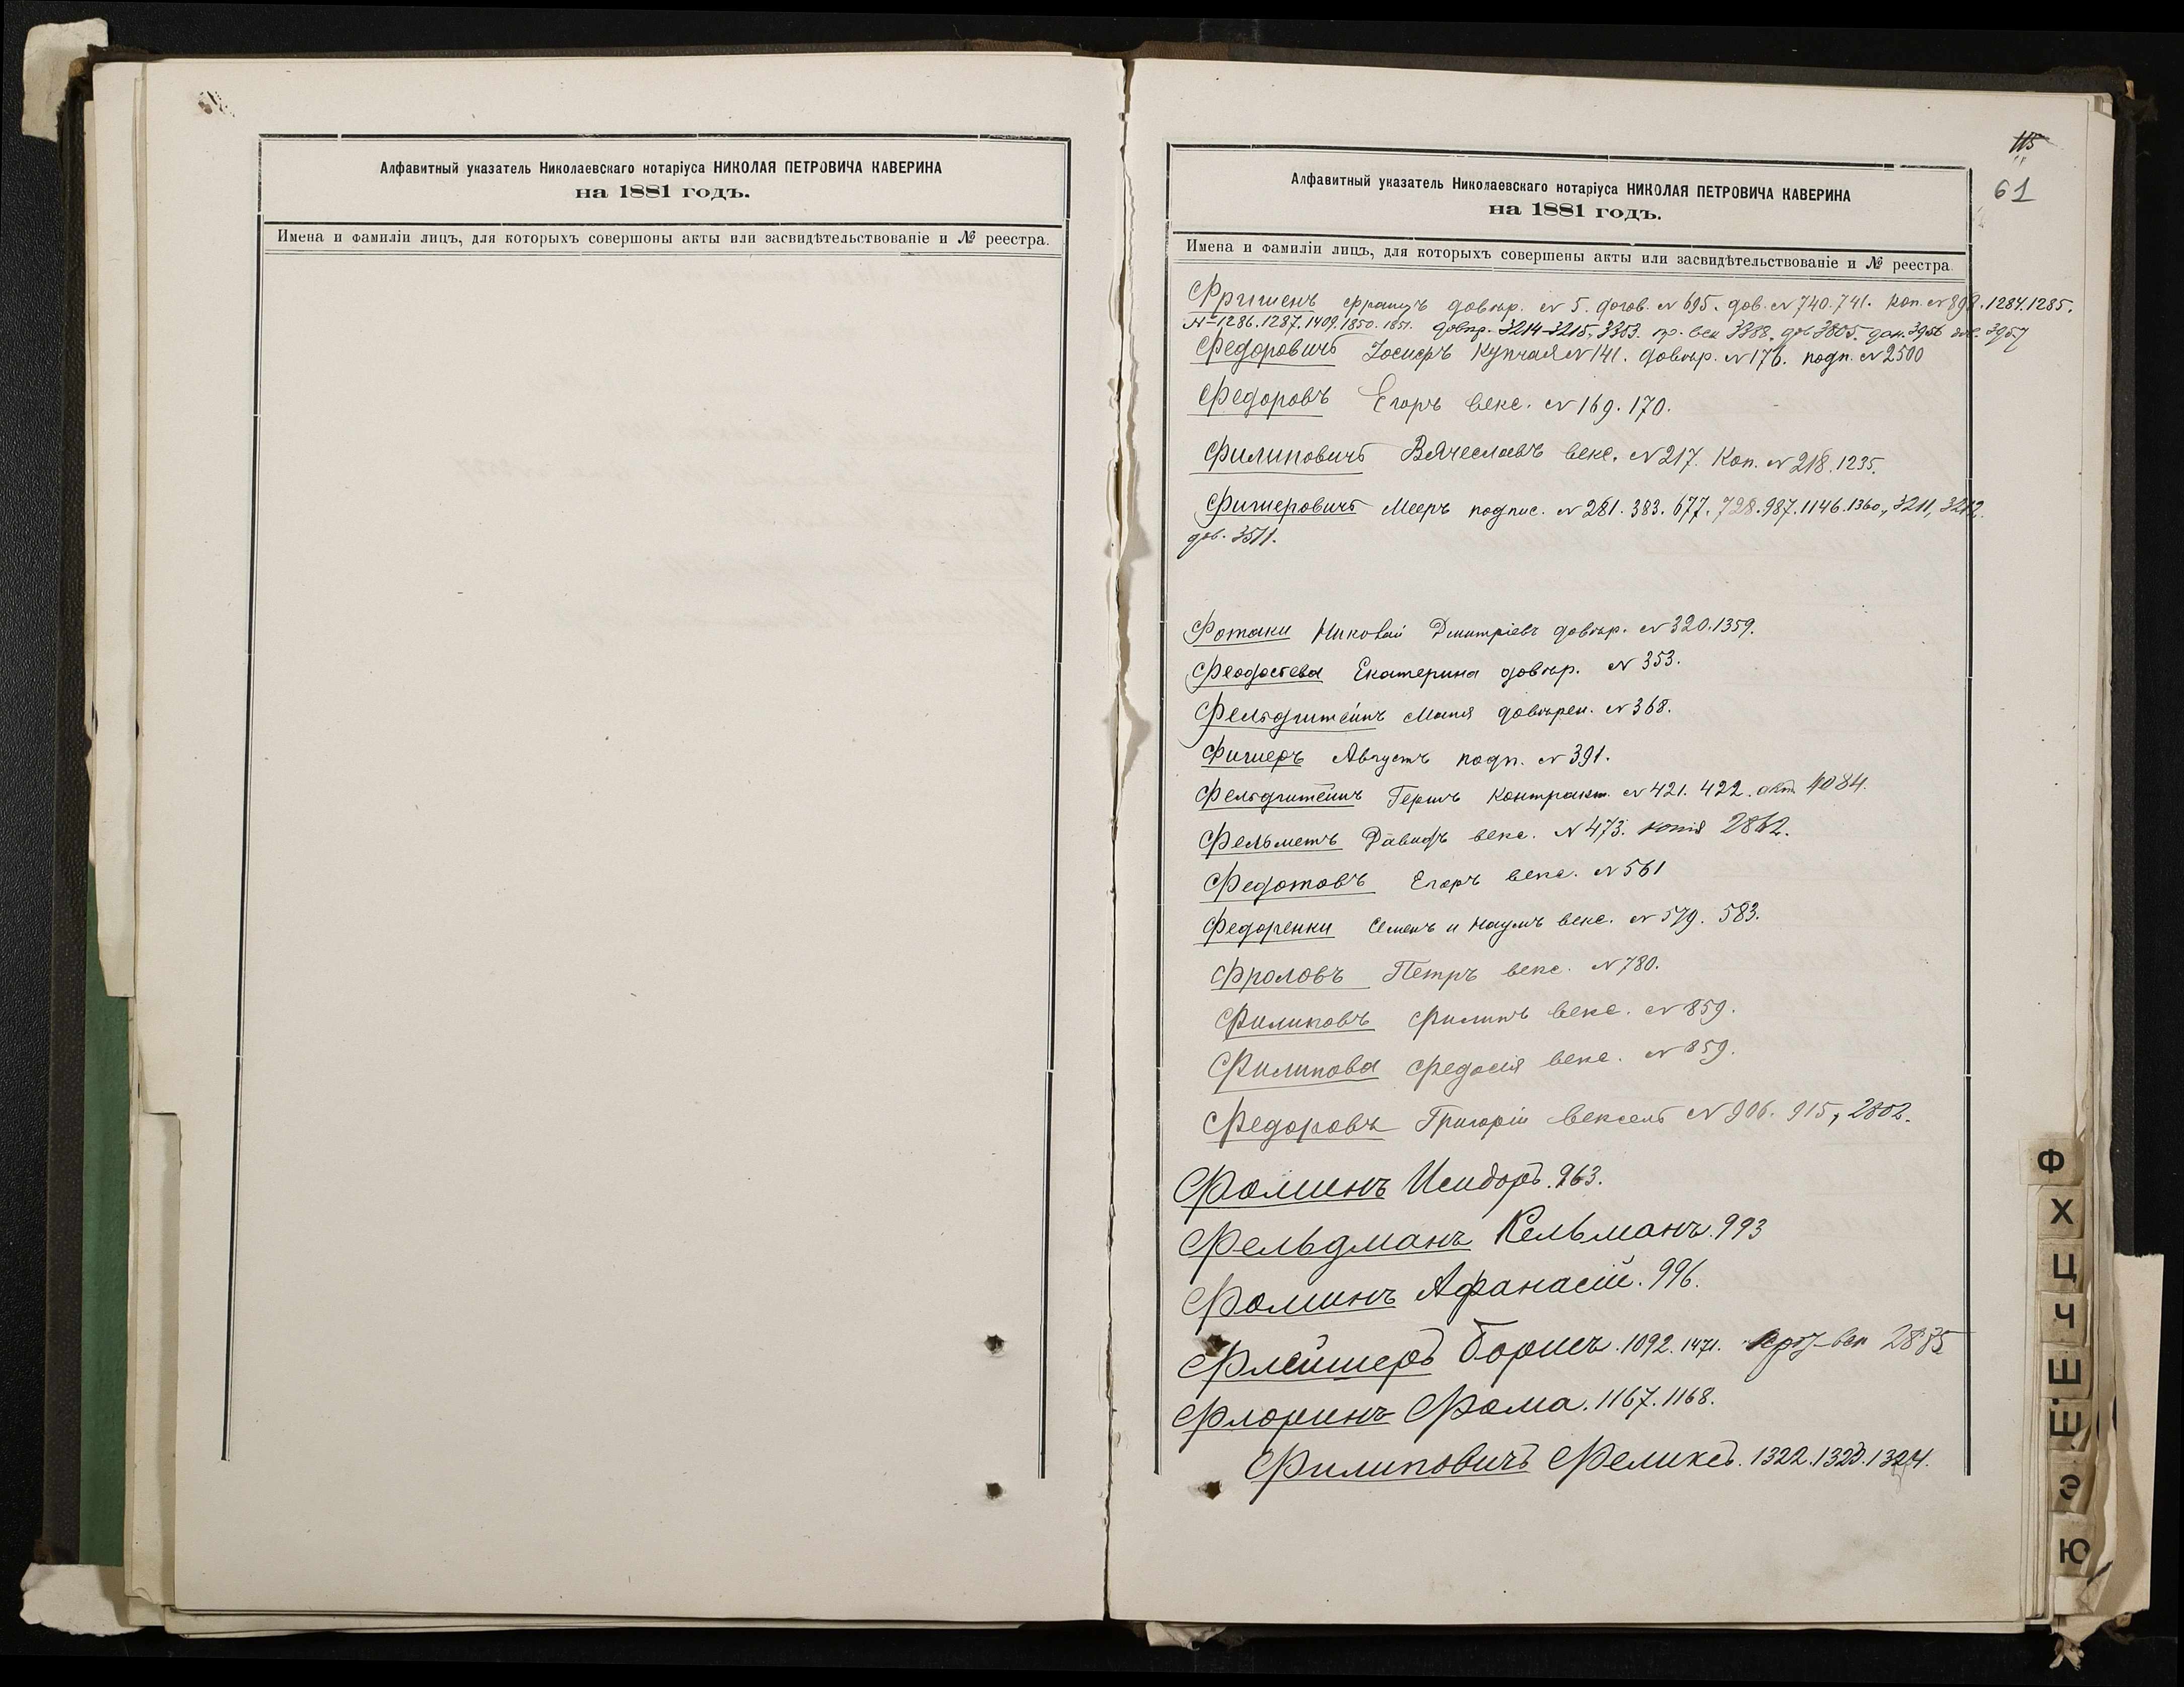 Алфавитный указатель Николаевскаго нотаріуса НИКОЛАЯ ПЕТРОВИЧА КАВЕРИНА
на 1881 годъ.
Имена и фамиліи лицъ, для которыхъ совершоны акты или засвидѣтельствованіе и № реестра.
115
61
Алфавитный указатель Николаевскаго нотаріуса НИКОЛАЯ ПЕТРОВИЧА КАВЕРИНА
на 1881 годъ.
Имена и фамиліи лицъ, для которыхъ совершены акты или засвидѣтельствованіе и № реестра.
Фришенъ Францъ довѣр. № 5. догов. № 695. дов. № 740. 741. коп. № 898. 1284. 1285.
№ 1286. 1287. 1409. 1850. 1851. довѣр. 3214-3215, 3353. пр. век 3388. дов 3805. 3956 3957
Федоровичъ Іосифъ купчая № 141. довѣр. № 176. подп. № 2500
Федоровъ Егоръ векс. № 169. 170.
Филиповичъ Вячеславъ векс. № 217. Коп. № 218. 1235.
Фишеровичъ Мееръ подпис. № 281. 383. 677. 728. 987. 1146. 1360., 3211, 3212.
дов. 3511.
Фотаки Николай Дмитріевъ довѣр. № 320. 1359.
Феодосіева Екатерина довѣр. № 353.
Фельдштейнъ Мотя довѣрен. № 368.
Фишеръ Августъ подп. № 391.
Фельдштейнъ Гершъ Контракт. № 421. 422. акт 4084.
Фельметъ Давидъ векс. № 473. копія 2862.
Федотовъ Егоръ векс. № 561
Федоренки Семенъ и Наумъ векс. № 579. 583.
Фроловъ Петръ векс. № 780.
Филиповъ Филипъ векс. № 859.
Филипова Федосія векс. № 859.
Федоровъ Григорій Вексель № 906. 915, 2802.
Фоминъ Исидоръ. 963.
Фельдманъ Кельманъ. 993
Фоминъ Афанасій. 996.
Флейшеръ Борисъ. 1092. 1471. век 2885
Флоринъ Фома. 1167. 1168.
Филиповичъ Феликсъ. 1322. 1323. 1324.
Ф
Х
Ц
Ч
Ш
Щ
Э
Ю